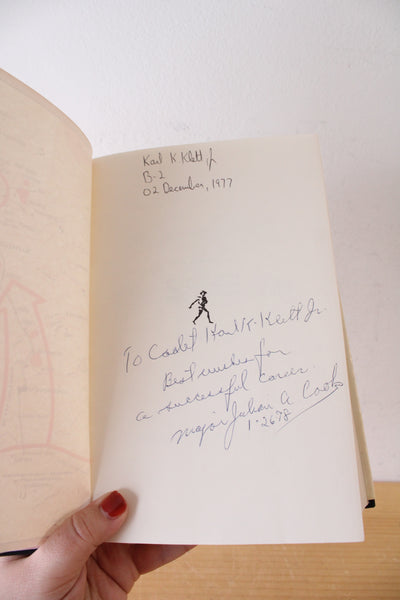 Karl K Klett Jr
B-2
02 December, 1977
To Cadet Karl K. Klett Jr.
Best wishes for
a successful career.
Major Julian A. Cook
1-26-78